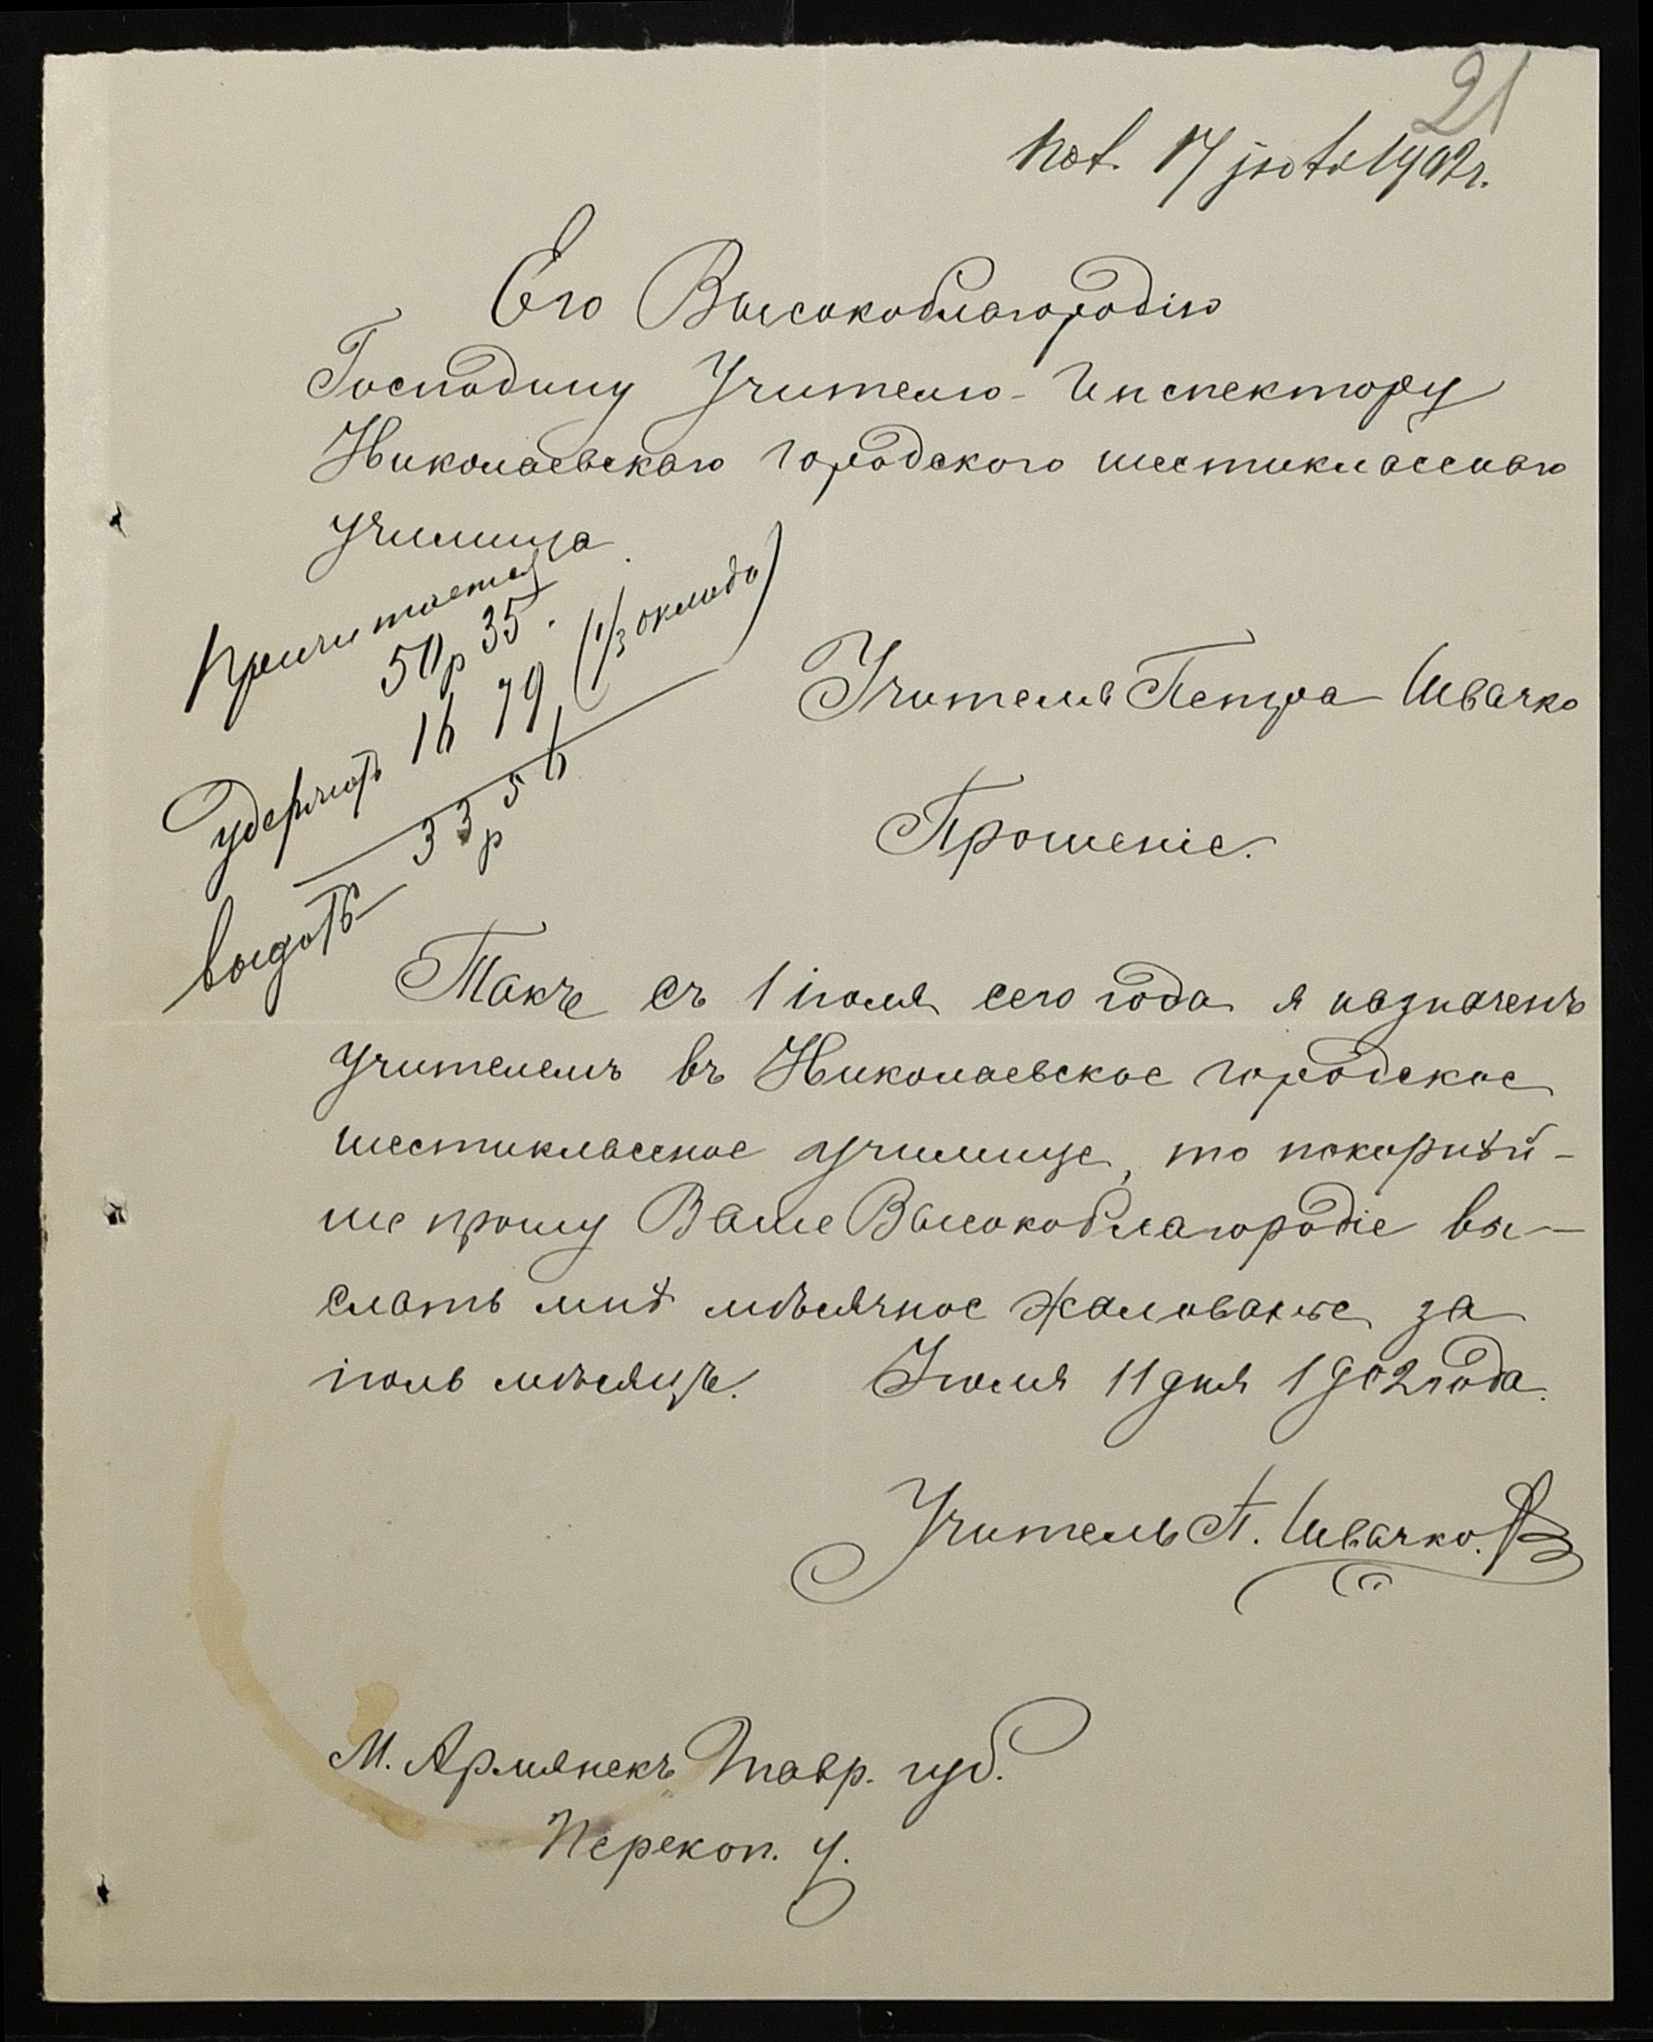 21
пол. 17 июля 1902 г.
Его Высокоблагородію
Господину Учителю-Инспектору
Николаевскаго городского шестикласснаго
училища.
Причитается
50 р 35.
удержать 16 79 (1/3 оклада)
выдать 33 р 56
Учителя Петра Швачко
Прошеніе.
Такъ съ 1 іюля сего года я назначенъ
учителемъ въ Николаевское городское
шестиклассное училище, то покорнѣй-
ше прошу Ваше Высокоблагородіе вы-
слать мнѣ мѣсячное жалованье за
іюль мѣсяцъ. Іюля 11 дня 1902 года.
Учитель П. Швачко.
М. Армянскъ Тавр. губ.
Перекоп. у.